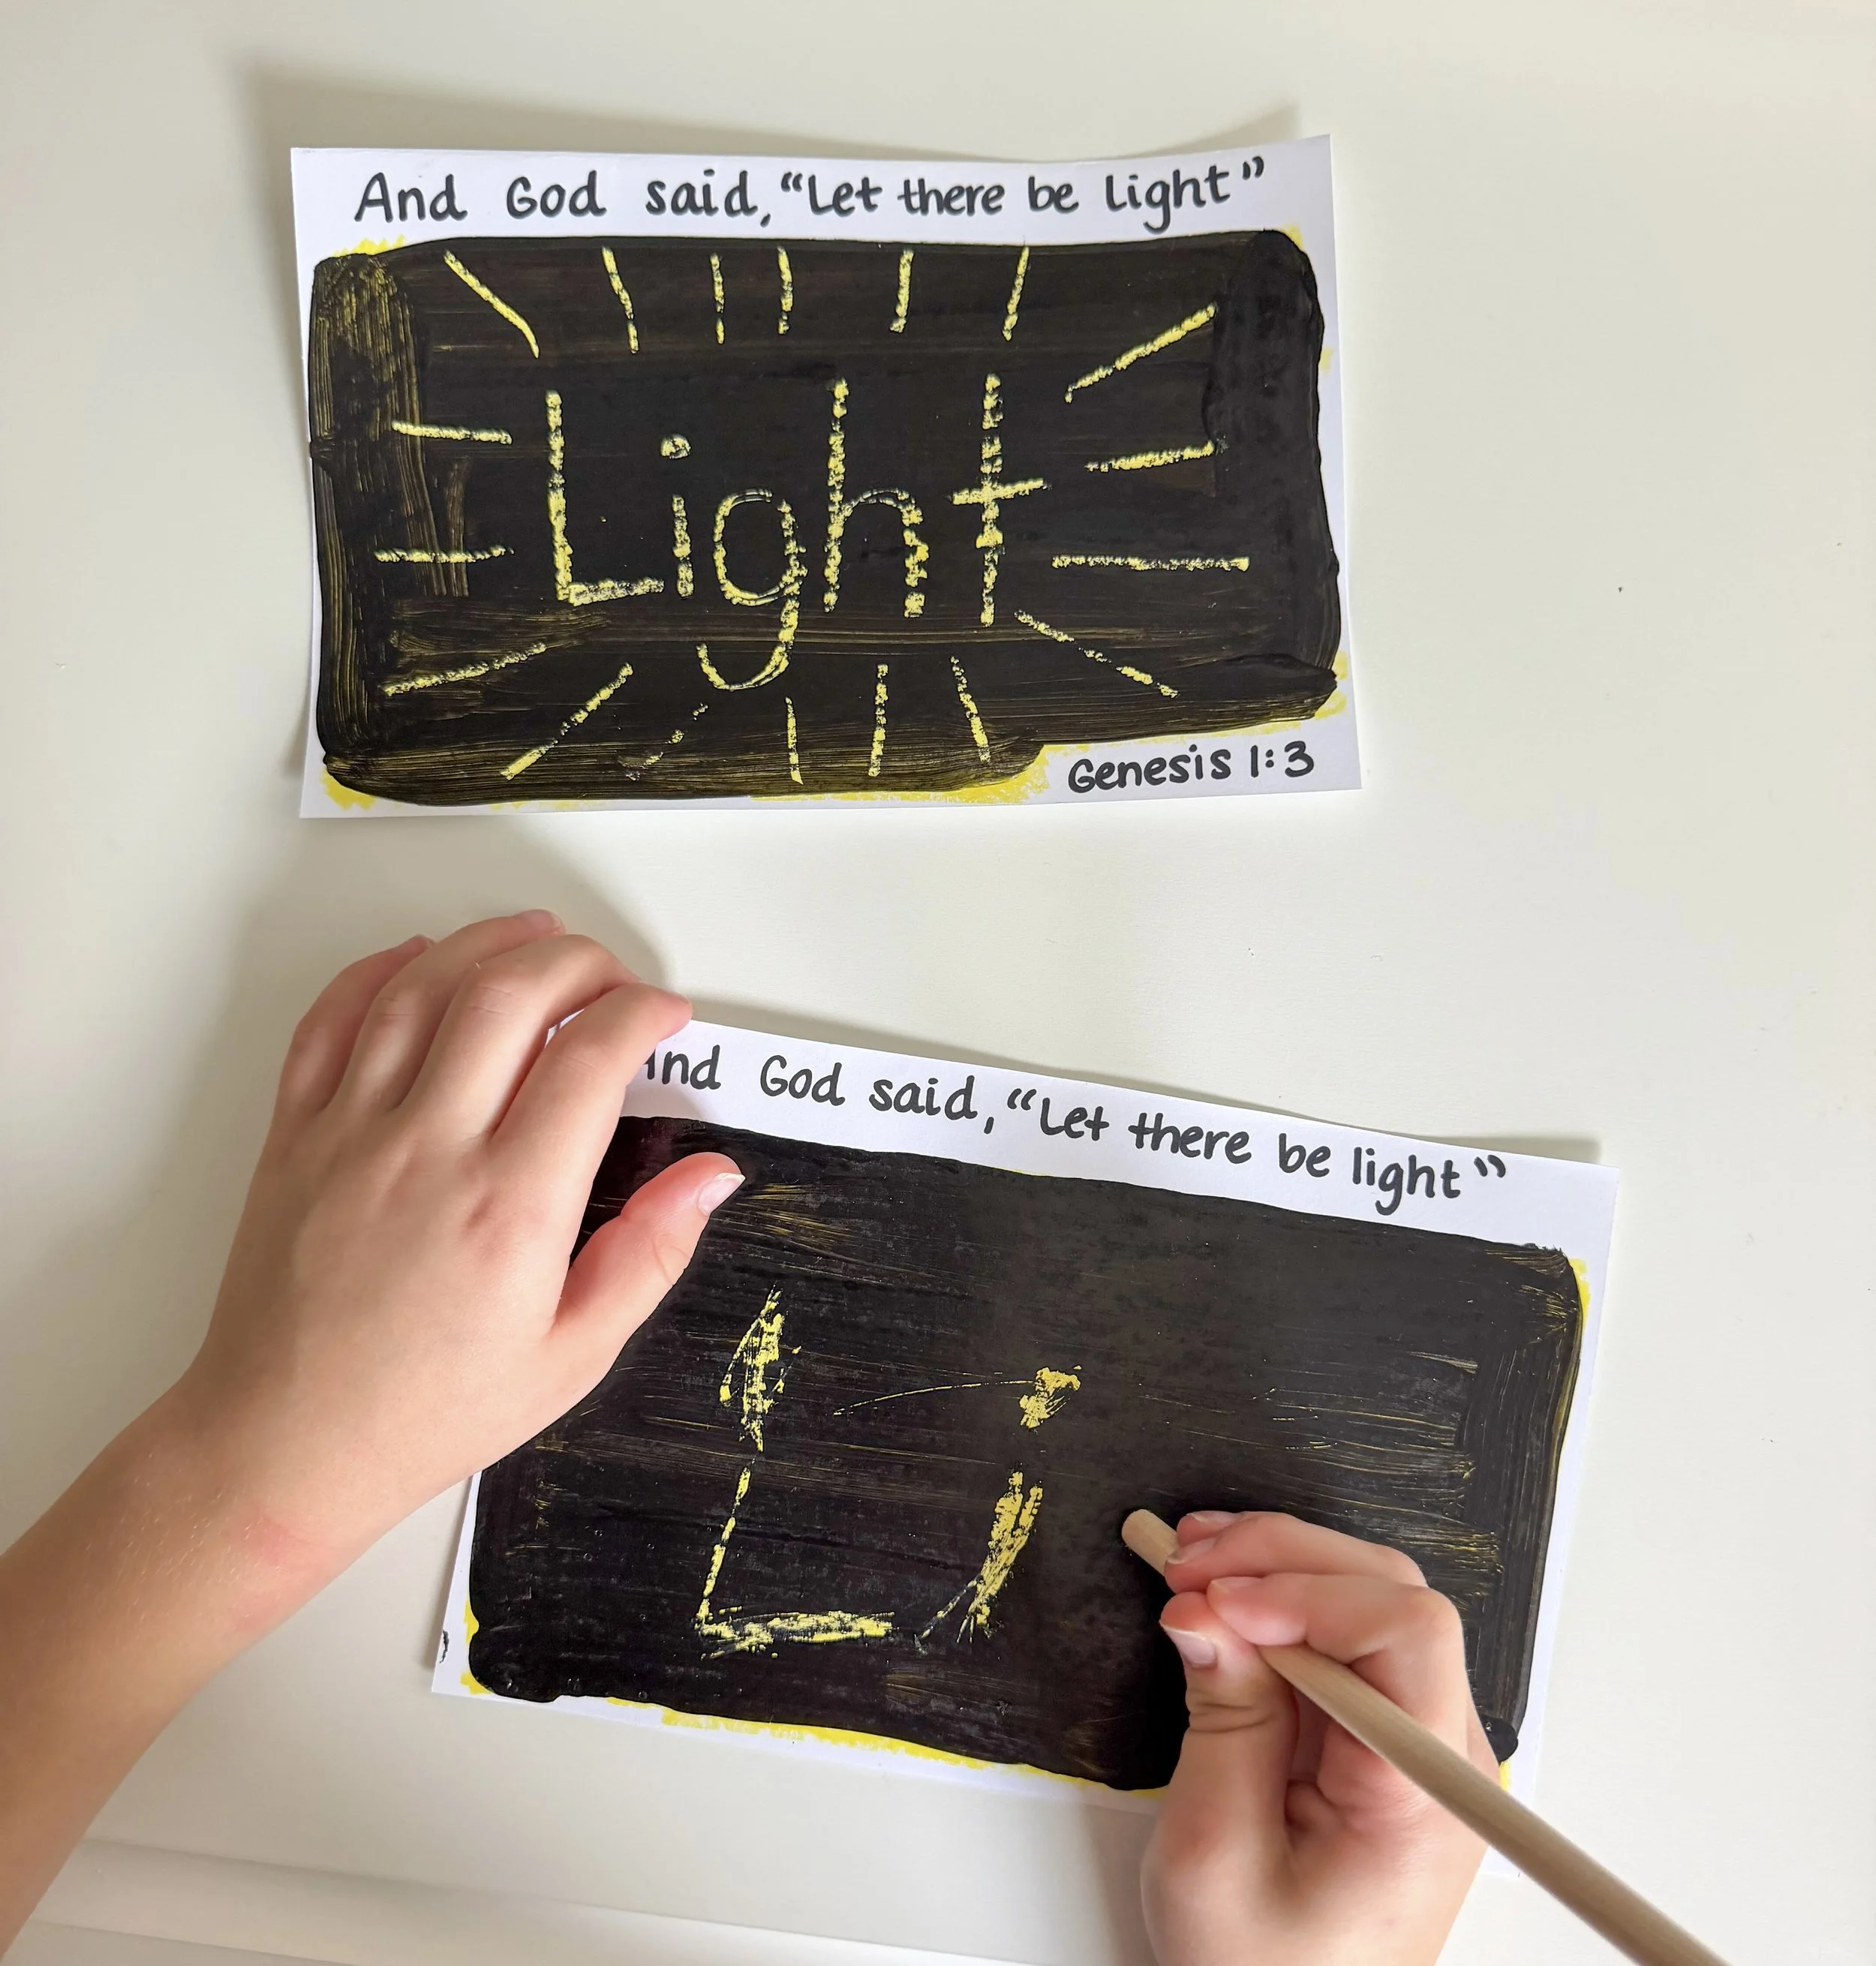 And God said, “Let there be light”
Light
Genesis 1:3
And God said, “Let there be light”
Li